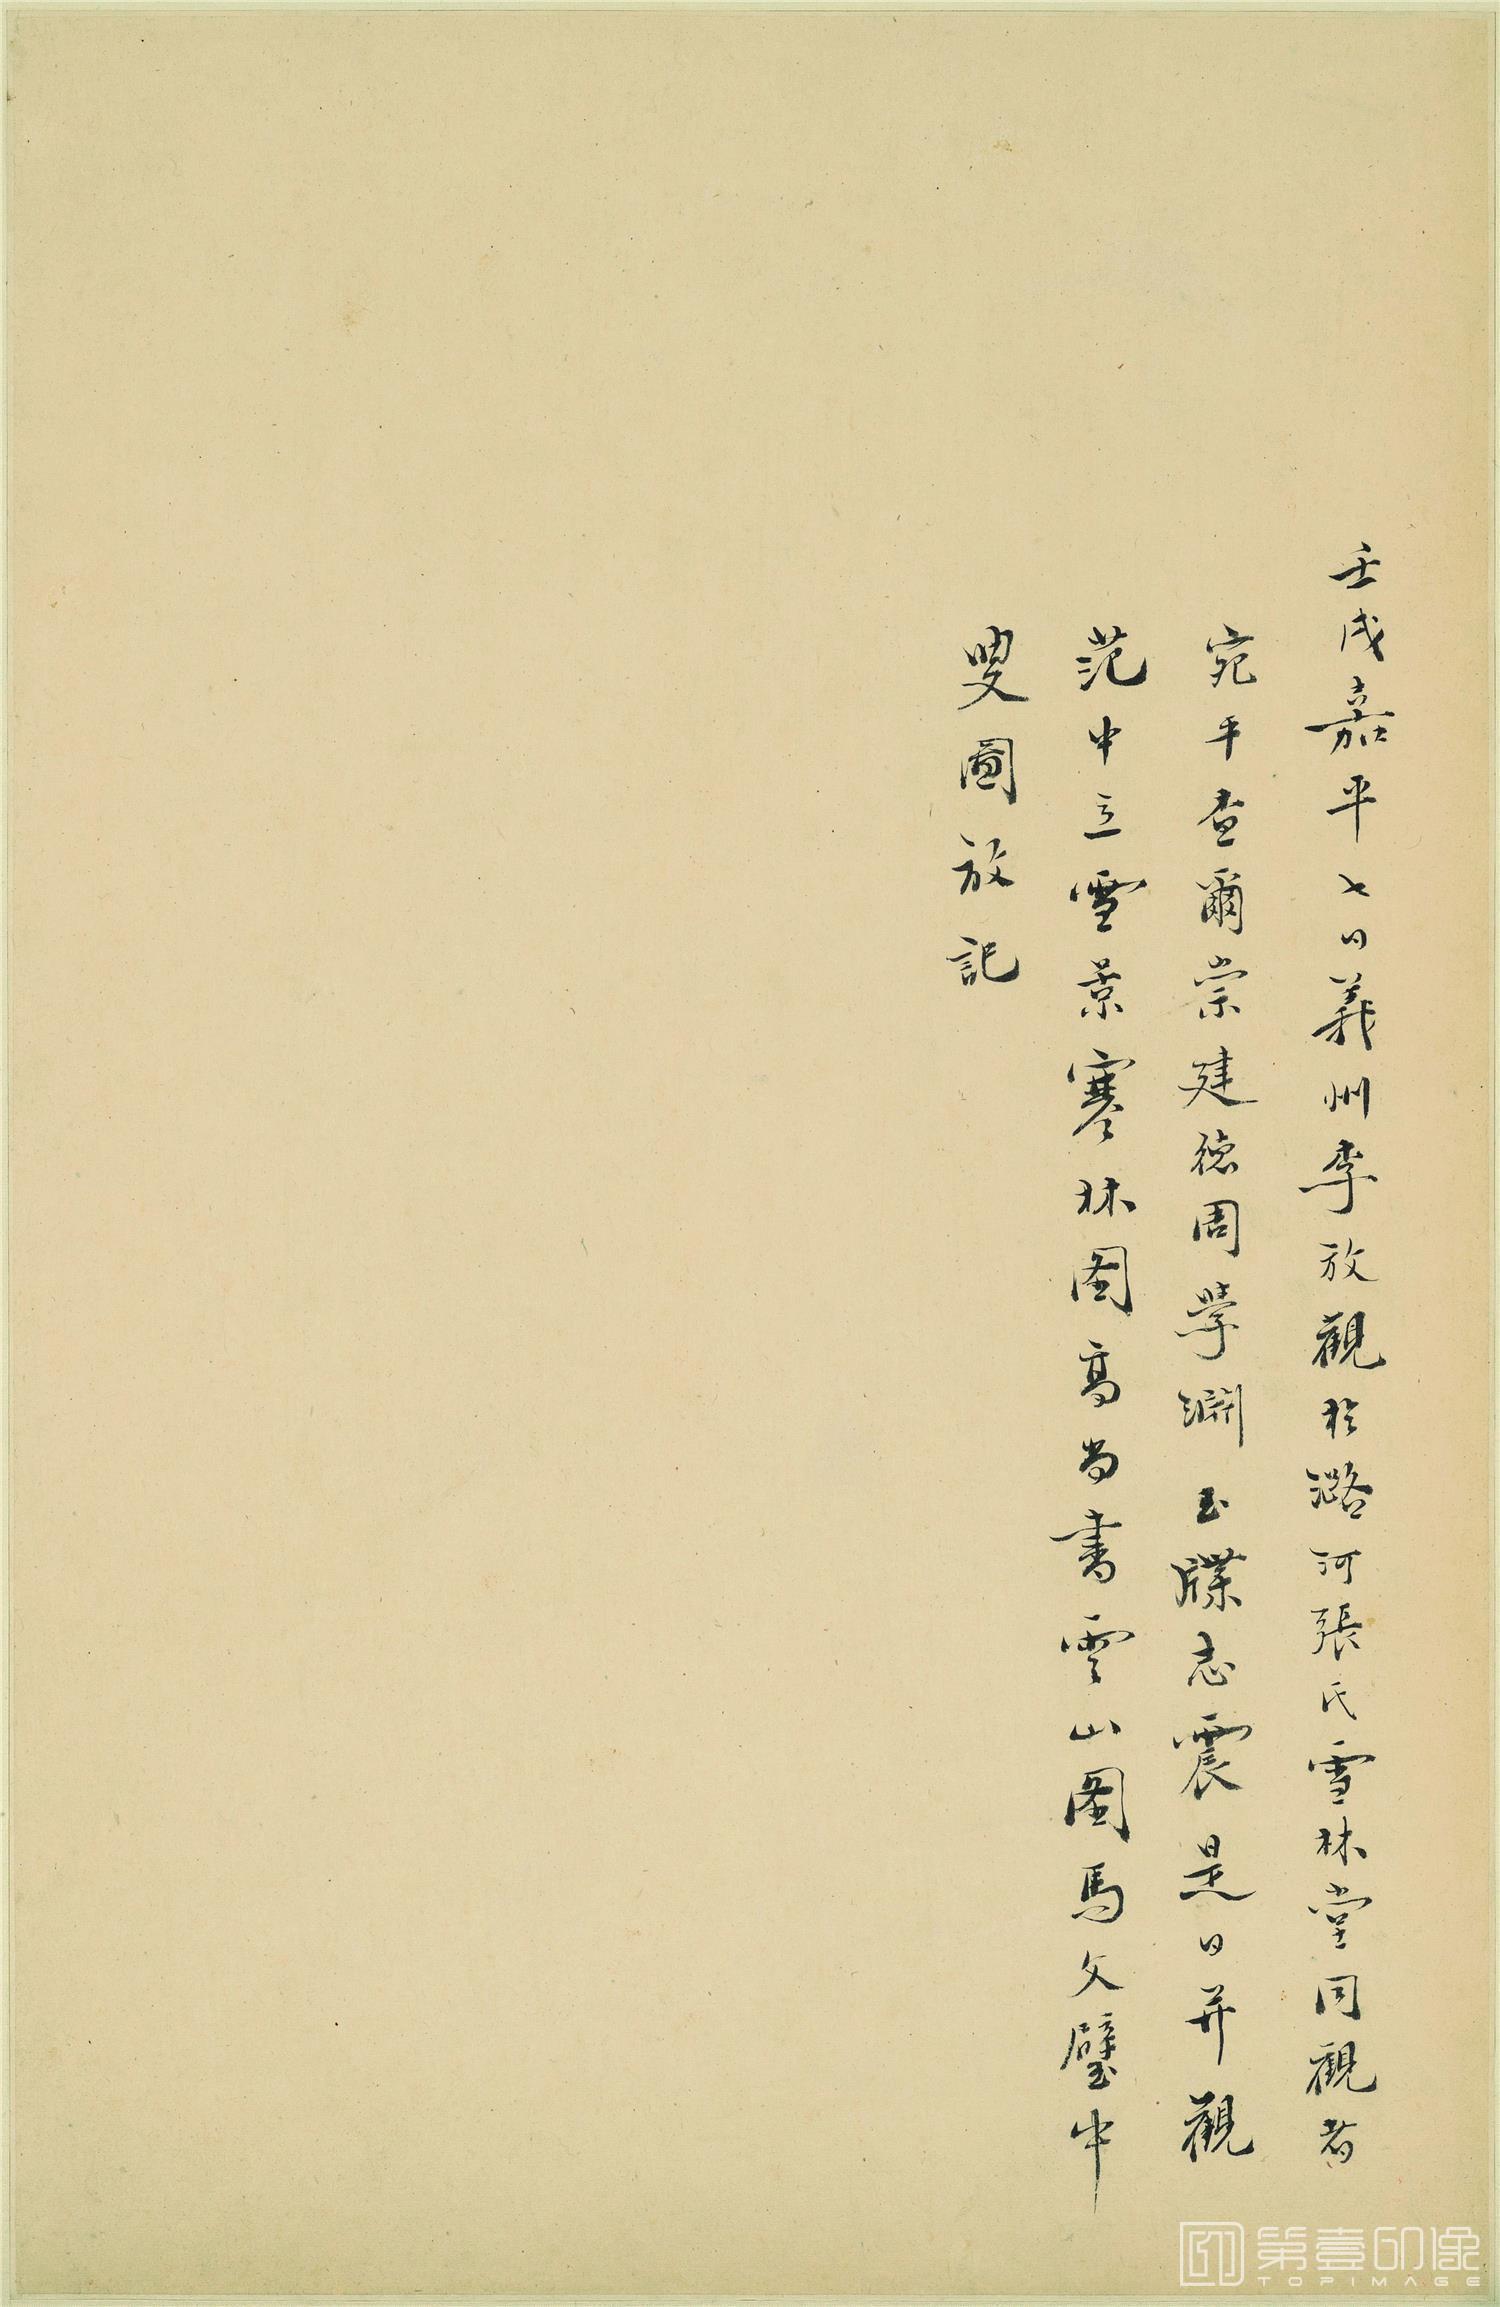 壬戌嘉平七日義州李放觀於潞河張氏雪林堂同觀者
宛平查爾崇建德周學淵玉牒志震是日并觀
范中立雪景寒林图高尚書雲山图馬文璧中
叟圖放記
第壹印像
TOPIMAGE